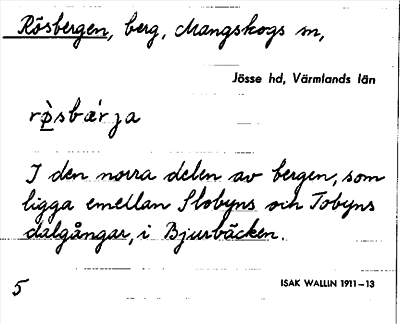 Rösbergen, berg, Mangskogs sn,
Jösse hd, Värmlands län
rø̀sbæŕja
I den norra delen av bergen, som
ligga emellan Slobyns och Tobyns
dalgångar, i Bjurbäcken.
5
ISAK WALLIN 1911–13